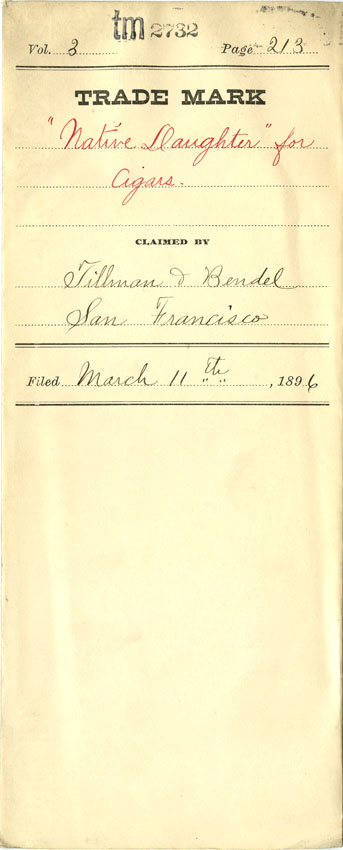 tm 2732
Vol. 3 Page 213
TRADE MARK
"Native Daughter" for
Cigars.
CLAIMED BY
Tillman & Bendel
San Francisco
Filed March 11th, 1896